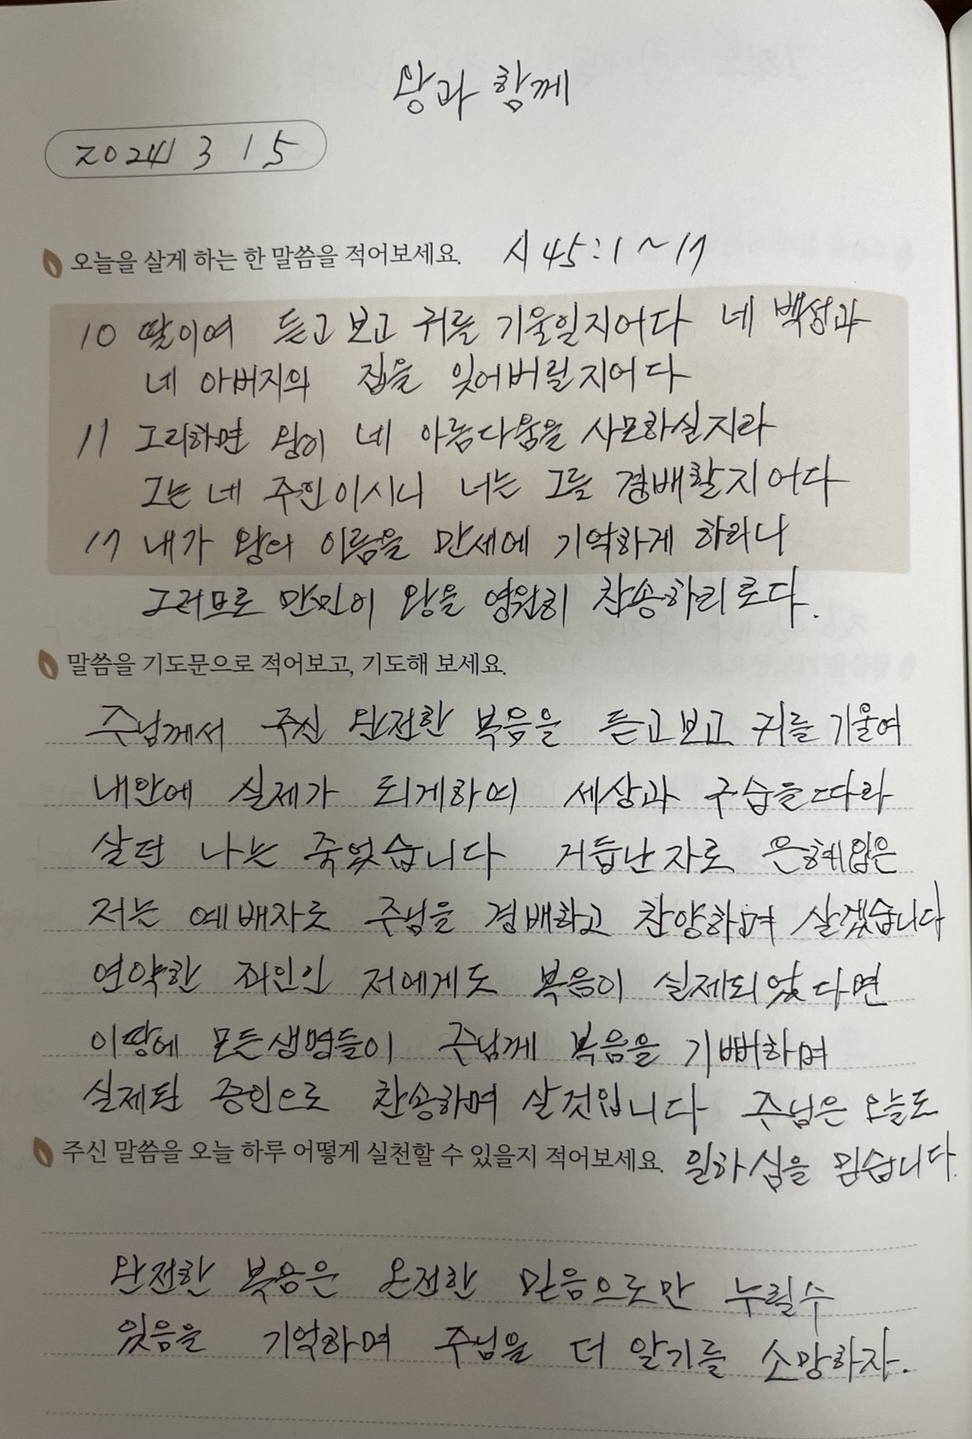 왕과 함께
2024 3 15
오늘을 살게 하는 한 말씀을 적어보세요. 시 45:1~17
10 딸이여 듣고 보고 귀를 기울일지어다 네 백성과
네 아버지의 집을 잊어버릴지어다
11 그리하면 왕이 네 아름다움을 사모하실지라
그는 네 주인이시니 너는 그를 경배할지어다
17 내가 왕의 이름을 만세에 기억하게 하리니
그러므로 만민이 왕을 영원히 찬송하리로다.
말씀을 기도문으로 적어보고, 기도해 보세요.
주님께서 주신 완전한 복음을 듣고 보고 귀를 기울여
내안에 실제가 되게하여 세상과 구습을 따라
살던 나는 죽었습니다 거듭난 자로 은혜입은
저는 예배자로 주님을 경배하고 찬양하며 살겠습니다
연약한 죄인인 저에게도 복음이 실제되었다면
이땅에 모든생명들이 주님께 복음을 기뻐하며
실제된 증인으로 찬송하며 살것입니다 주님은 오늘도
주신 말씀을 오늘 하루 어떻게 실천할 수 있을지 적어보세요. 일하심을 믿습니다.
완전한 복음은 온전한 믿음으로만 누릴수
있음을 기억하며 주님을 더 알기를 소망하자.